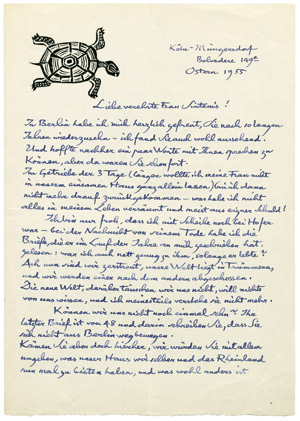 Köln-Müngersdorf
Belvedere 149c
Ostern 1955
Liebe verehrte Frau Sintenis!
In Berlin habe ich mich herzlich gefreut, Sie nach so langen
Jahren wiederzusehn – ich fand Sie auch wohl aussehend.
Und hoffte nachher ein paar Worte mit Ihnen sprechen zu
können, aber da waren Sie schon fort.
Im Getriebe der 3 Tage (länger wollte ich meine Frau nicht
in unserem einsamen Haus ganz allein lassen) bin ich dann
nicht mehr darauf zurückgekommen – was habe ich nicht
alles in meinem Leben versäumt und meist aus eigner Schuld!
Ich bin nur froh, dass ich mit Schiele noch bei Hofer
war – bei der Nachricht von seinem Tode habe ich die
Briefe, die er im Laufe der Jahre an mich geschrieben hat,
gelesen: war ich auch nett genug zu ihm, solange er lebte?
Ach, wir sind, wir zerstreut, unsre Welt liegt in Trümmern,
und wir werden einer nach dem andern abgeschossen.
Die neue Welt, darüber täuschen wir uns nicht, will nichts
von uns wissen, und ich meinesteils verstehe sie nicht mehr.
Können wir uns nicht noch einmal sehn? Ihr
letzter Brief ist von 48 und darin schreiben Sie, dass Sie
sich nicht aus Berlin wegbewegen.
Kämen Sie aber doch hierher, wir würden Sie mit allem
umgeben, was unser Haus, wir selber und das Rheinland
nun mal zu bieten haben, und was wohl anders ist